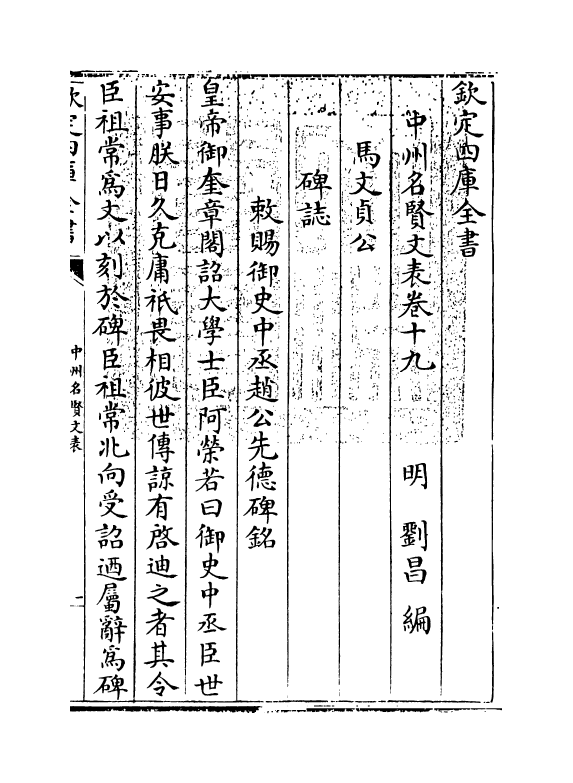 欽定四庫全書
中州名賢文表卷十九
明 劉昌 編
馬文貞公
碑誌
敕賜御史中丞趙公先德碑銘
皇帝御奎章閣詔大學士臣阿榮若曰御史中丞臣世
安事朕日久克庸祇畏相彼世傳諒有啓迪之者其令
臣祖常為文以刻於碑臣祖常北向受詔廼屬辭為碑
欽定四庫全書
中州名賢文表